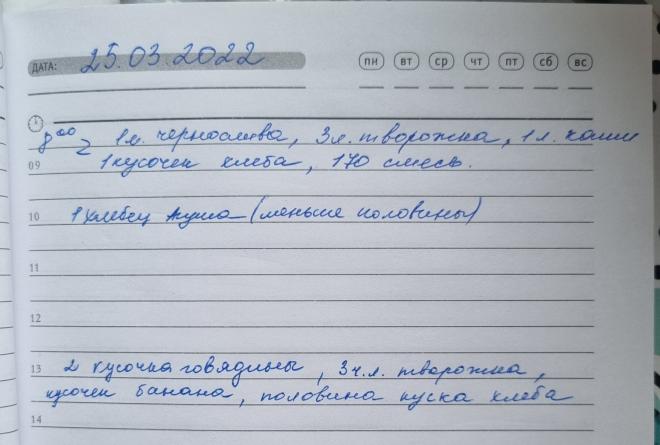 ДАТА: 25.03.2022 пн вт ср чт пт сб вс
8⁰⁰ 2 1л. чернослива, 3л. творожка, 1л. каши
09 1 кусочек хлеба, 170 смесь.
10 1 хлебец груша (меньше половины)
11
12
13 2 кусочка говядины, 3ч.л. творожка,
кусочек банана, половина куска хлеба
14